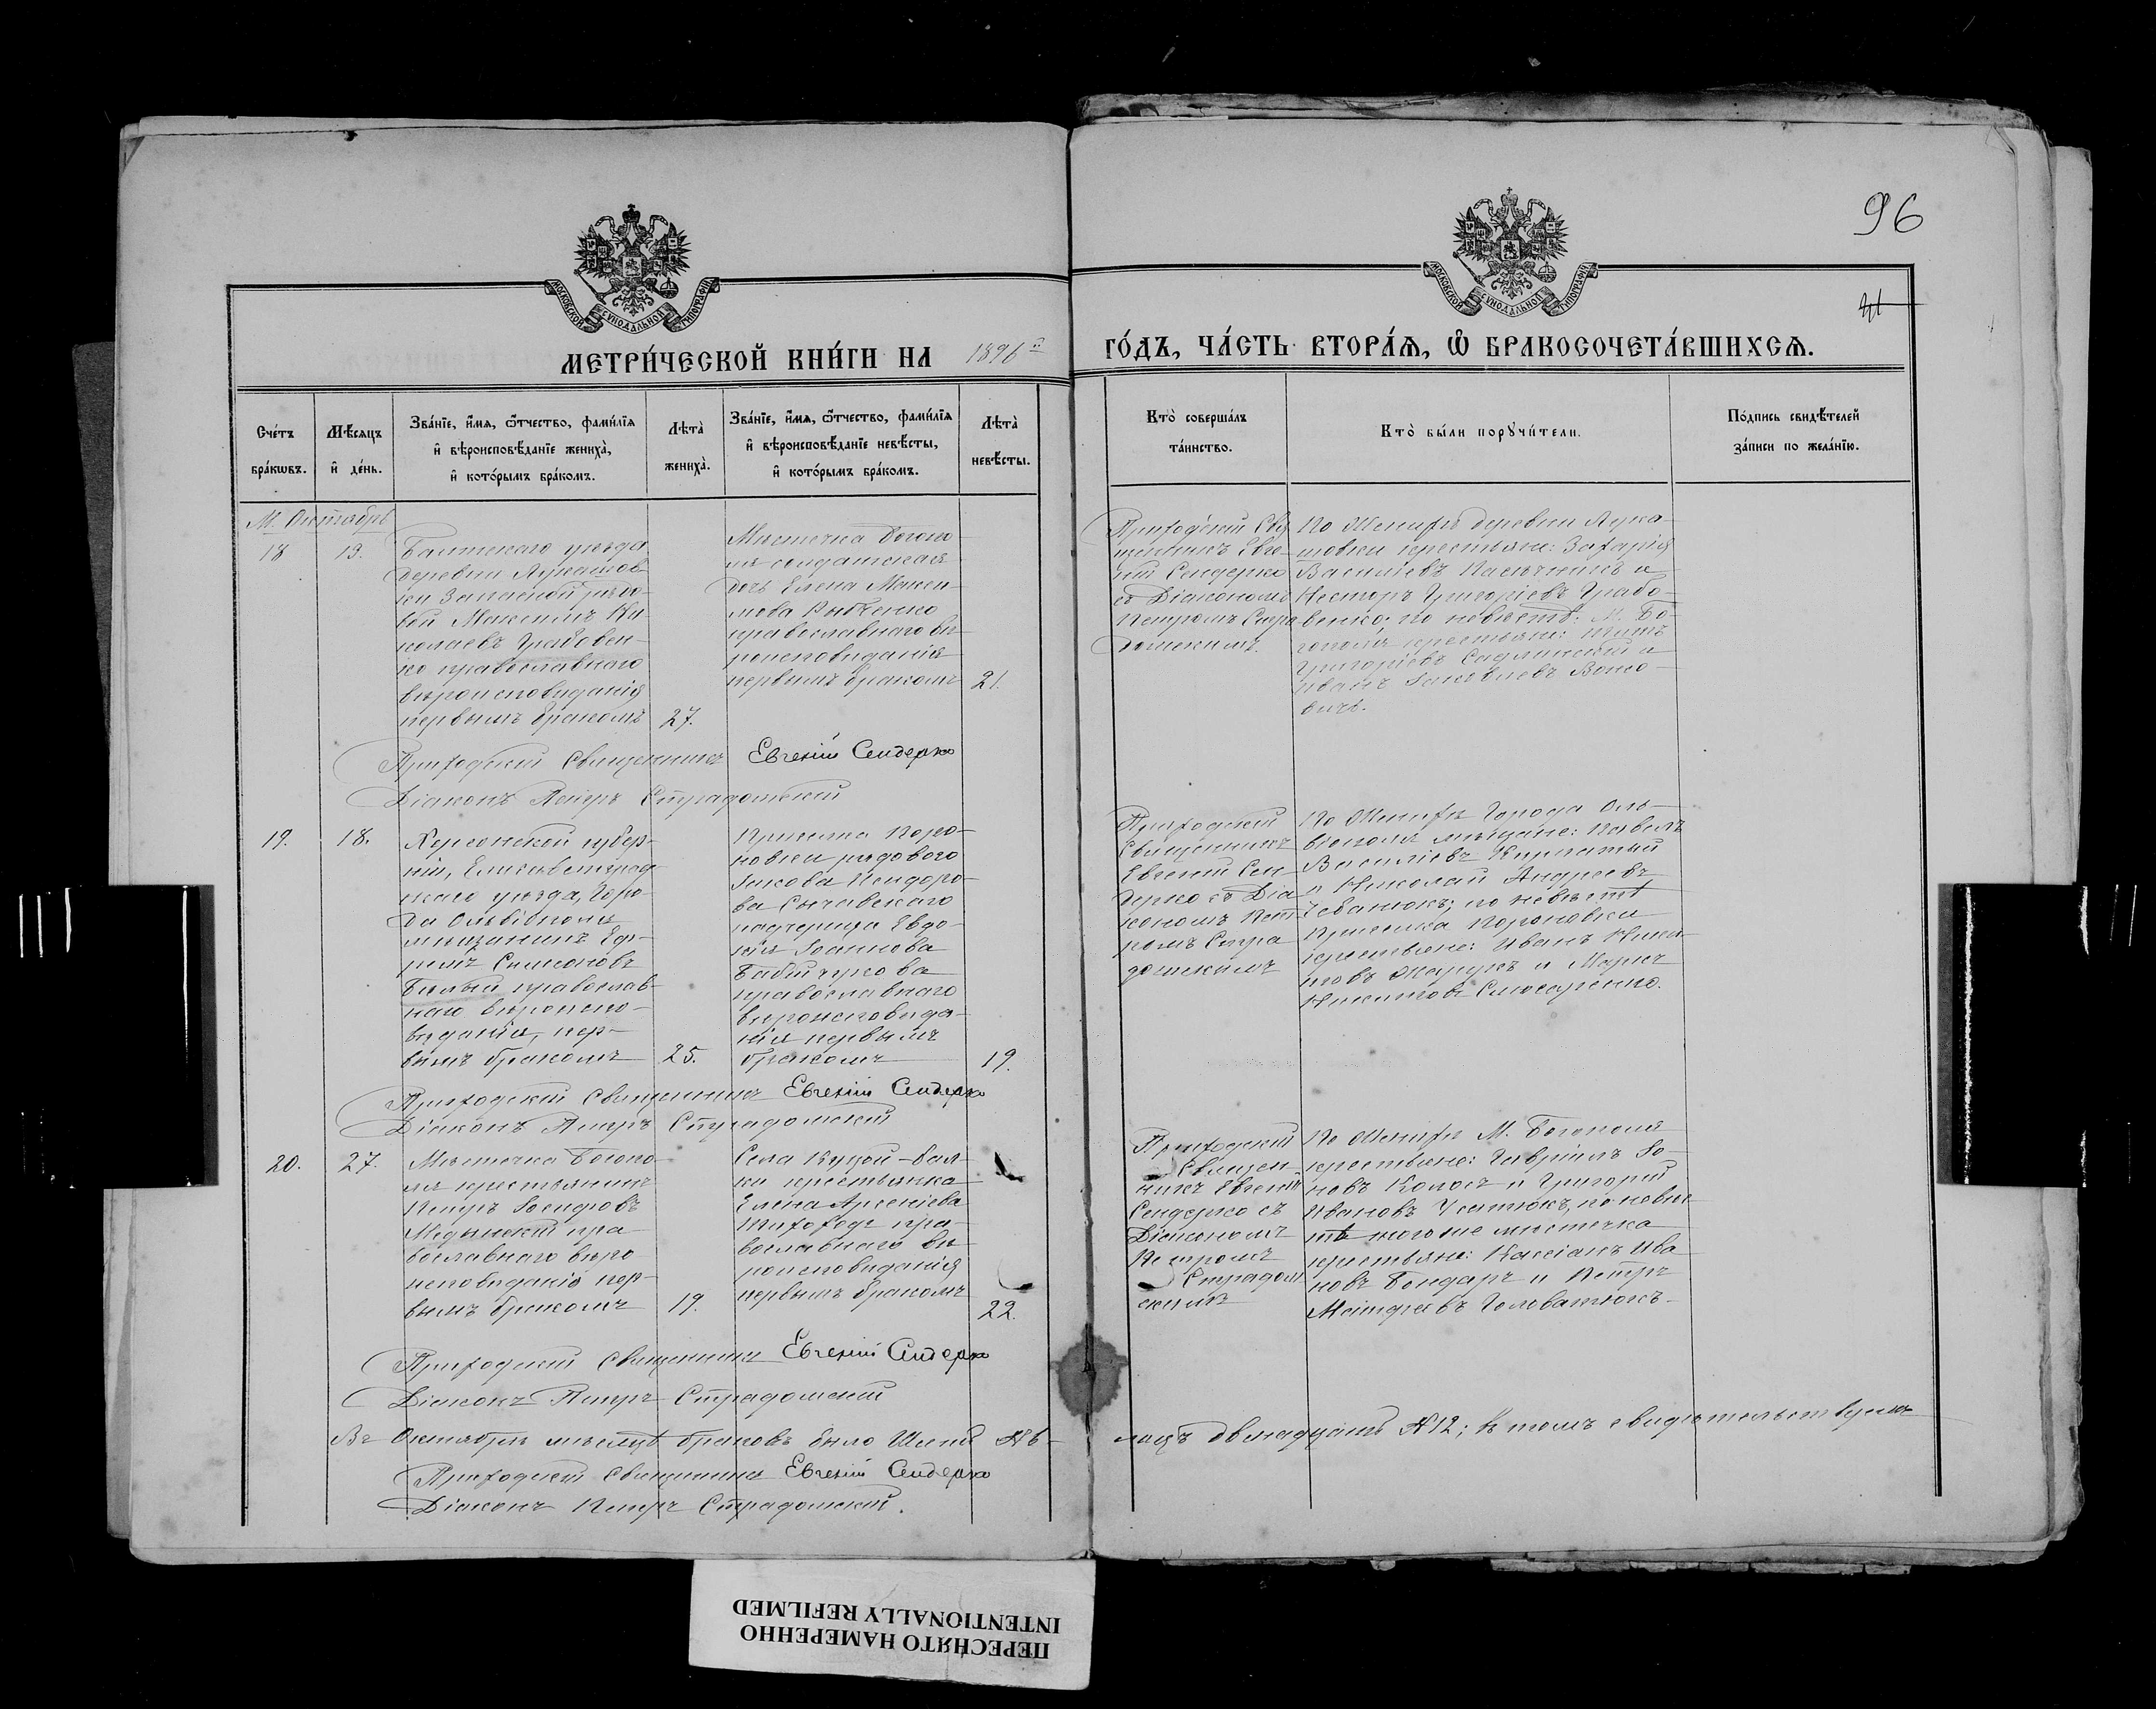 96
41
МОСКОВСКОЙ СѴНОДАЛЬНОЙ ТИПОГРАФІИ
МОСКОВСКОЙ СѴНОДАЛЬНОЙ ТИПОГРАФІИ
МЕТРИ́ЧЕСКОЙ КНИ́ГИ НА 1896 й
ГО́ДЪ, ЧА́СТЬ ВТОРА́Ѧ, Ѽ БРАКОСОЧЕТА́ВШИХСѦ.
Сче́тъ бра́кѡвъ.
Мѣ́сяцъ и҆ де́нь.
Зва́нїе, и҆́мя, ѻ҆́тчество, фами́лїя
и҆ вѣроисповѣ́данїе жениха̀,
и҆ кото́рымъ бра́комъ.
Лѣта̀ жениха̀.
Зва́нїе, и҆́мя, ѻ҆́тчество, фами́лїя
и҆ вѣроисповѣ́данїе невѣ́сты,
и҆ кото́рымъ бра́комъ.
Лѣта̀ невѣ́сты.
Кто̀ соверша́лъ
та́инство.
Кто̀ бы́ли порꙋчи́тели.
По́дпись свидѣ́телей
за́писи по жела́нїю.
М. Октябрь
18
13.
Балтскаго уѣзда
деревни Лукашов-
ки Запасной рядо-
вой Максимъ Ни-
колаевъ Грабовен-
ко православнаго
вѣроисповѣданія
первымъ бракомъ
27.
Мѣстечка Богопо-
ля солдатская
дочь Елена Макси-
мова Рыбченко
православнаго вѣ-
роисповѣданія
первымъ бракомъ
21.
Приходскій Свя
щенникъ Евге-
ній Сендерко
съ Діакономъ
Петромъ Стра
домскимъ.
По Женихѣ деревни Лука-
шовки крестьяне: Захарія
Василіевъ Пасѣчникъ и
Несторъ Григоріевъ Грабо-
венко; по невѣстѣ: М. Бо-
гополя крестьяне: Титъ
Григоріевъ Садлинскій и
Иванъ Іаковлевъ Войто-
вичъ.
Приходскій Священникъ Евгеній Сендерко
Діаконъ Петръ Страдомскій
19.
18.
Херсонской губер-
ніи, Елисаветград-
скаго уѣзда, Горо-
да Ольвіополя
мѣщанинъ Еф-
ремъ Симеоновъ
Бѣлый православ-
наго вѣроиспо-
вѣданія, пер-
вымъ бракомъ
25.
Приселка Коро-
новки рядового
Іакова Исидоро-
ва Сычевскаго
падчерица Евдо-
кія Іоаннова
православнаго
вѣроисповѣда-
нія первымъ
бракомъ
19.
Приходскій
Священникъ
Евгеній Сен-
дерко съ Діа
кономъ Пет-
ромъ Стра
домскимъ
По Женихѣ Города Оль-
віополя мѣщане: Павелъ
Василіевъ
и Николай Андреевъ
по невѣстѣ
Приселка Короновки
крестьяне: Иванъ Ники-
товъ и Маркъ
Никитовъ Слюсаренко.
Приходскій Священникъ Евгеній Сендерко
Діаконъ Петръ Страдомскій
20.
27.
Мѣстечка Богопо-
ля крестьянинъ
Петръ Іосифовъ
Медынскій пра
вославнаго вѣро
исповѣданія пер-
вымъ бракомъ
19.
Села Куцой-Бал-
ки крестьянка
Елена Арсеніева
Тихоходъ пра-
вославнаго вѣ
роисповѣданія
первымъ бракомъ
22.
Приходскій
Священ-
никъ Евгеній
Сендерко съ
Діакономъ
Петромъ
Страдом
скимъ
По Женихѣ М. Богополя
крестьяне: Гавріилъ Іо-
новъ и Григорій
Ивановъ по невѣс
тѣ того же мѣстечка
крестьяне: Кассіанъ Ива
новъ Бондарь и Петръ
Матфеевъ Головатюкъ.
Приходскій Священникъ Евгеній Сендерко
Діаконъ Петръ Страдомскій
Въ Октябрѣ мѣсяцѣ браковъ было Шесть №6- лицъ двенадцать №12; въ томъ свидѣтельствуемъ
Приходскій Священникъ Евгеній Сендерко
Діаконъ Петръ Страдомскій.
ПЕРЕСНЯТО НАМЕРЕННО
INTENTIONALLY REFILMED